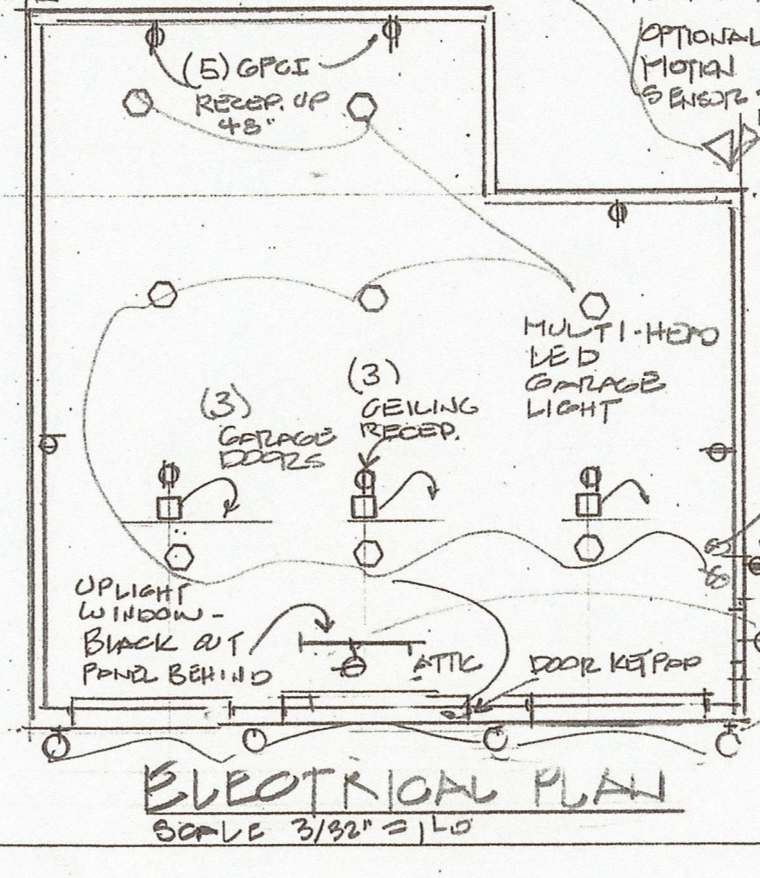 OPTIONAL
MOTION
SENSOR
(5) GFCI
RECEP. UP
48"
MULTI-HEAD
LED
GARAGE
LIGHT
(3)
GARAGE
DOORS
(3)
CEILING
RECEP.
UPLIGHT
WINDOW-
BLACK OUT
PANEL BEHIND
ATTIC
DOOR KEYPAD
ELECTRICAL PLAN
SCALE 3/32" = 1'-0